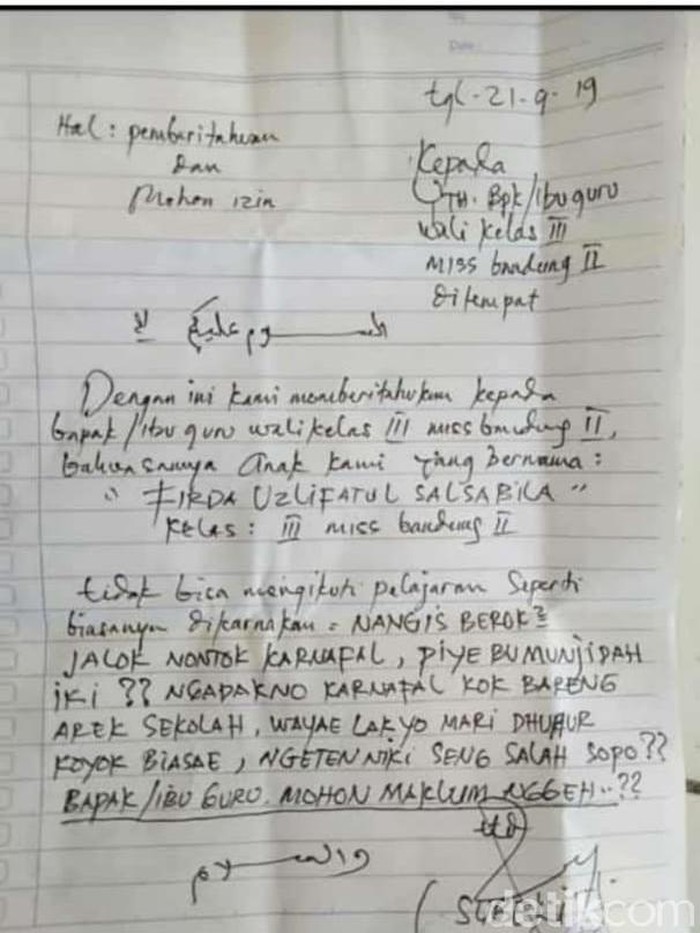 tgl. 21-9-19
Hal : pemberitahuan
dan
Mohon izin
Kepada
YTH. Bpk/ibu guru
wali kelas III
MISS bandung II
ditempat
السلام عليكم
Dengan ini kami memberitahukan kepada
bapak/ibu guru wali kelas III miss bandung II,
bahwasanya anak kami yang bernama :
" FIRDA UZLIFATUL SALSABILA "
Kelas : III miss bandung II
tidak bisa mengikuti pelajaran seperti
biasanya dikarnakan = NANGIS BEROK²
JALOK NONTOK KARNAFAL, PIYE BU MUNJIDAH
iki ?? NGADAKNO KARNAFAL KOK BARENG
AREK SEKOLAH, WAYAE LAK YO MARI DHUHUR
KOYOK BIASAE, NGETEN NIKI SENG SALAH SOPO??
BAPAK/IBU GURU. MOHON MAKLUM NGGEH..??
والسلام
ttd
detikcom